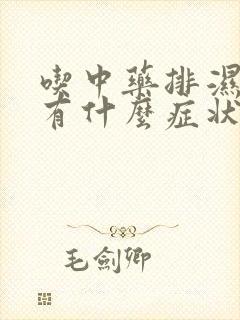 喫中藥排濕
有什麼症狀
毛劍卿